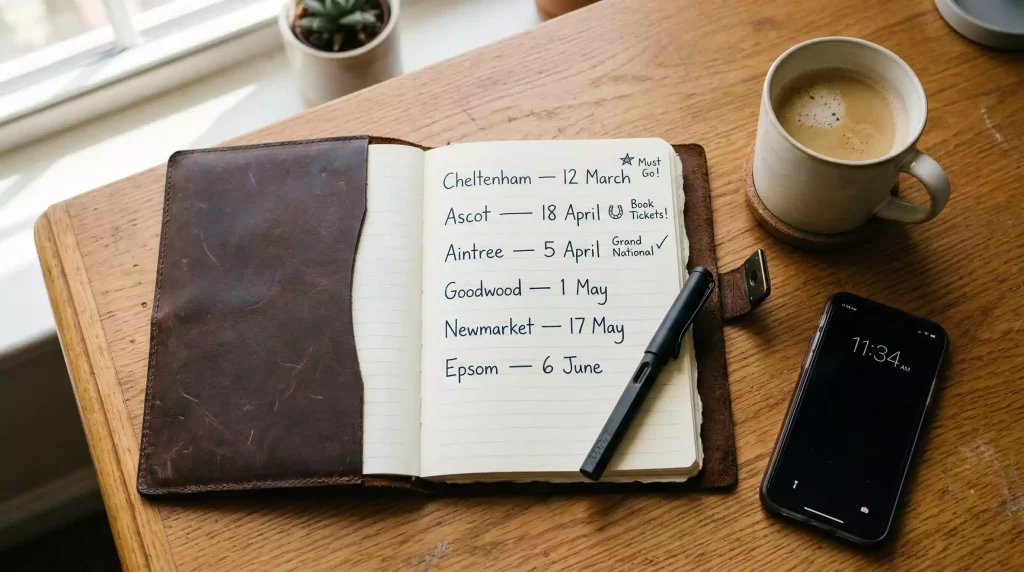 Cheltenham — 12 March ☆ Must Go!
Ascot — 18 April Book Tickets!
Aintree — 5 April Grand National ✓
Goodwood — 1 May
Newmarket — 17 May
Epsom — 6 June
11:34 AM